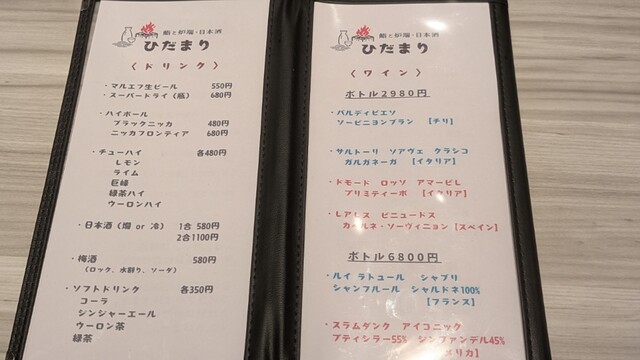 鮨と炉端・日本酒
ひだまり
〈ドリンク〉
・マルエフ生ビール 550円
・スーパードライ(瓶) 680円
・ハイボール
ブラックニッカ 480円
ニッカフロンティア 680円
・チューハイ 各480円
レモン
ライム
巨峰
緑茶ハイ
ウーロンハイ
・日本酒(燗 or 冷) 1合 580円
2合1100円
・梅酒 580円
(ロック、水割り、ソーダ)
・ソフトドリンク 各350円
コーラ
ジンジャーエール
ウーロン茶
緑茶
鮨と炉端・日本酒
ひだまり
〈ワイン〉
ボトル2980円
・バルディビエソ
ソービニヨンブラン 【チリ】
・サルトーリ ソアヴェ クラシコ
ガルガネーガ 【イタリア】
・ドモード ロッソ アマービレ
プリミティーボ 【イタリア】
・レアレス ビニュードス
カベルネ・ソーヴィニョン【スペイン】
ボトル6800円
・ルイ ラトゥール シャブリ
シャンフルール シャルドネ100%
【フランス】
・スラムダンク アイコニック
プティシラー55% ジンファンデル45%
メリカ】